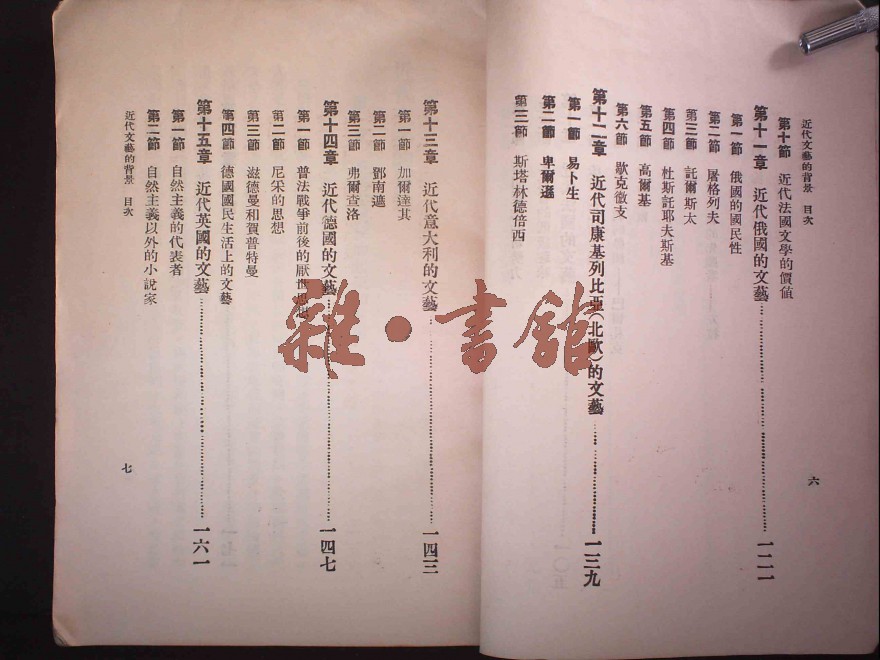 近代文藝的背景　目次
第十節　近代法國文學的價值
第十一章　近代俄國的文藝……一二一
第一節　俄國的國民性
第二節　屠格列夫
第三節　託爾斯太
第四節　杜斯託耶夫斯基
第五節　高爾基
第六節　歇克微支
第十二章　近代司康基列比亞（北歐）的文藝……一三九
第一節　易卜生
第二節　卑爾遜
第三節　斯塔林德倍西
六
第十三章　近代意大利的文藝……一四三
第一節　加爾達其
第二節　鄧南遮
第三節　弗爾查洛
第十四章　近代德國的文藝……一四七
第一節　普法戰爭前後的厭世思想
第二節　尼采的思想
第三節　滋德曼和賀普特曼
第四節　德國國民生活上的文藝
第十五章　近代英國的文藝……一六一
第一節　自然主義的代表者
第二節　自然主義以外的小說家
近代文藝的背景　目次
七
雜·書館